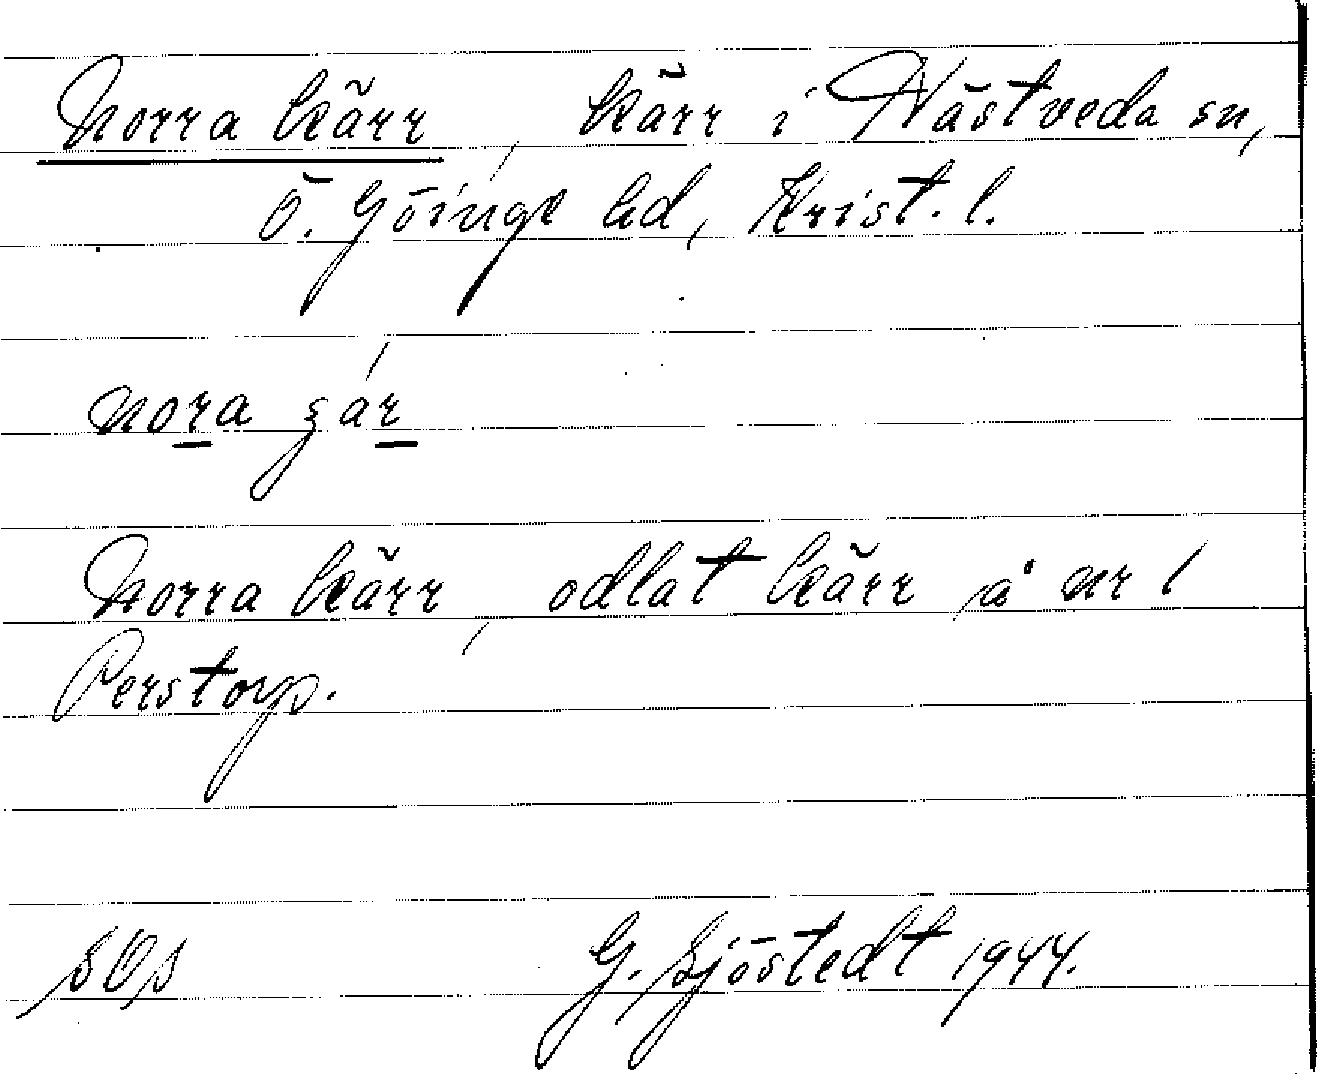 Norra kärr, kärr i Nästveda sn,
Ö. Göinge hd, Krist. l.
nora
Norra kärr, odlat kärr å nr 1
Perstorp.
G. Sjöstedt 1944.